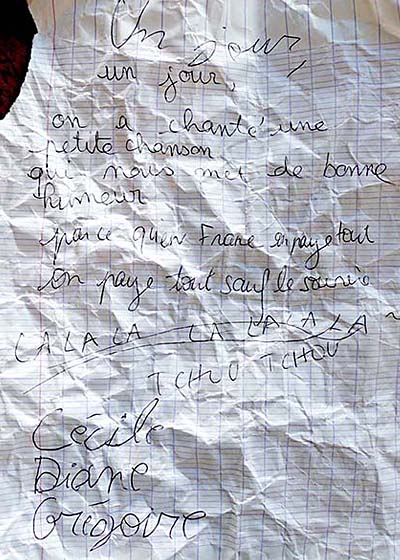 Un Jour,
un jour,
on a chanté une
petite chanson
qui nous met de bonne
humeur
parce qu'en France on paye tout
on paye tout sauf le sourire
LA LA LA LA LA LA LA
TCHOU TCHOU
Cécile
Diane
Grégoire